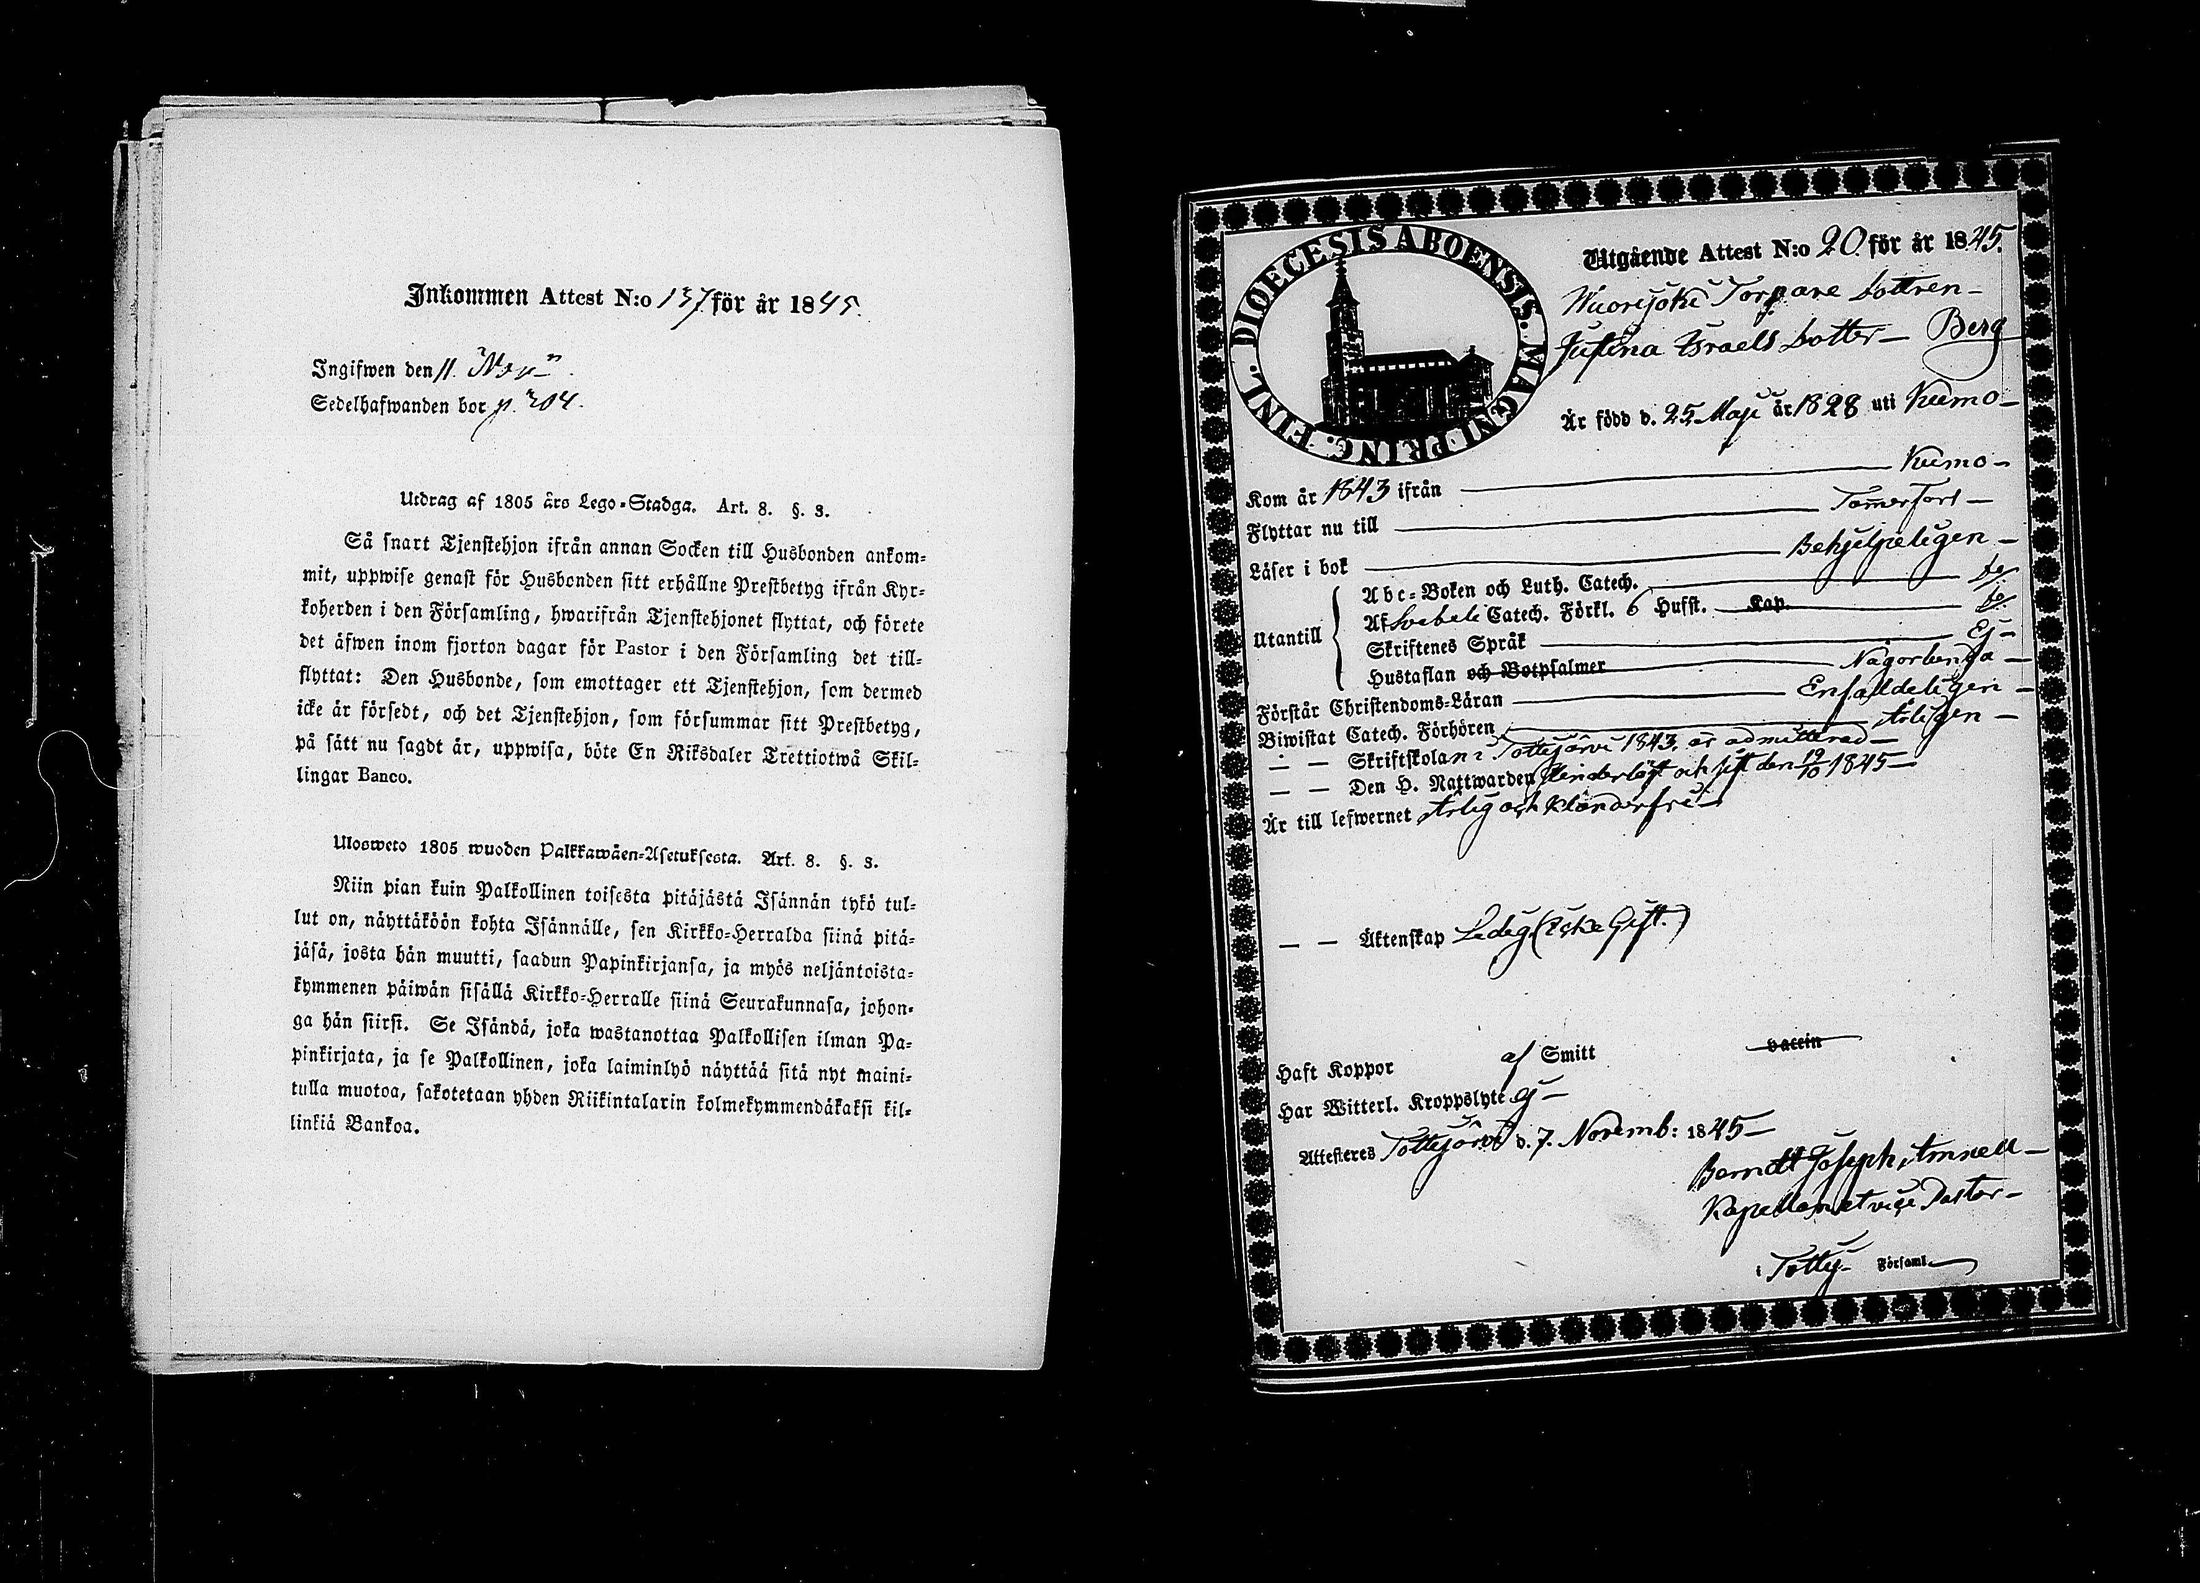 Inkommen Attest N:o 137 för år 1845.
Ingifwen den 11. Nov.
Sedelhafwanden bor p. 204.
Utdrag af 1805 års Lego-Stadga. Art. 8. §. 3.
Så snart Tjenstehjon ifrån annan Socken till Husbonden ankom-
mit, uppwise genast för Husbonden sitt erhållne Prestbetyg ifrån Kyr-
koherden i den Församling, hwarifrån Tjenstehjonet flyttat, och förete
det äfwen inom fjorton dagar för Pastor i den Församling det till-
flyttat: Den Husbonde, som emottager ett Tjenstehjon, som dermed
icke är försedt, och det Tjenstehjon, som försummar sitt Prestbetyg,
på sätt nu sagdt är, uppwisa, böte En Riksdaler Trettiotwå Skil-
lingar Banco.
Ulosweto 1805 wuoden Palkkawäen-Asetuksesta. Art. 8. §. 3.
Niin pian kuin Palkollinen toisesta pitäjästä Isännän tykö tul-
lut on, näyttäköön kohta Isännälle, sen Kirkko-Herralda siinä pitä-
jäsä, josta hän muutti, saadun Papinkirjansa, ja myös neljäntoista-
kymmenen päiwän sisällä Kirkko-Herralle siinä Seurakunnasa, johon-
ga hän siirsi. Se Isändä, joka wastanottaa Palkollisen ilman Pa-
pinkirjata, ja se Palkollinen, joka laiminlyö näyttää sitä nyt maini-
tulla muotoa, sakotetaan yhden Riikintalarin kolmekymmendäkaksi kil-
linkiä Bankoa.
DIOECESIS ABOENSIS. MAGNI PRINC. FINL.
Utgående Attest N:o 20. för år 1845.
Wuorijoki Torpare dottren-
Justina Israels dotter- Berg
Är född d. 25 Maji år 1828 uti Kumo-
Kom år 1843 ifrån Kumo-
Flyttar nu till Tam̄erfors-
Läser i bok Behjelpeligen-
Abc-Boken och Luth. Catech. do
Utantill Af Svebeli Catech. Förkl. 6 Hufst. Kap. do.
Skriftenes Språk Ej-
Hustaflan och Botpsalmer Någorlunda-
Förstår Christendoms-Läran Enfaldeligen-
Biwistat Catech. Förhören Årligen-
— — Skriftskolan i Tottijärvi 1843, är admitterad-
— — Den H. Nattwarden Hinderlöst och sist den 19/10 1845-
Är till lefwernet Ärlig och klanderfri-
— — Äktenskap Ledig (Icke Gift.)
Haft Koppor af Smitt vaccin
Har Witterl. Kroppslyte ej-
Attesteres Tottijärvi d. 7. Novemb: 1845-
Berndt Joseph Amnell-
Kapellan et vice Pastor-
i Totty- Församl.